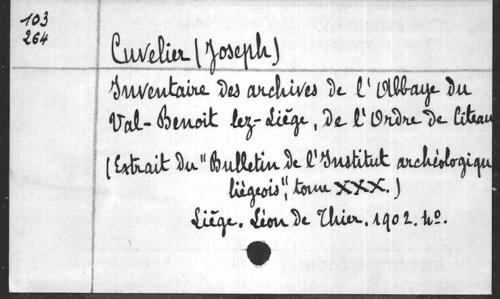 103
264
Cuvelier (Joseph)
Inventaire des archives de l'Abbaye du
Val-Benoit lez-Liége, de l'Ordre de Citeau
(Extrait du "Bulletin de l'Institut archéologiqu
liégeois", tome XXX.)
Liége. Léon de Thier. 1902. 4º.